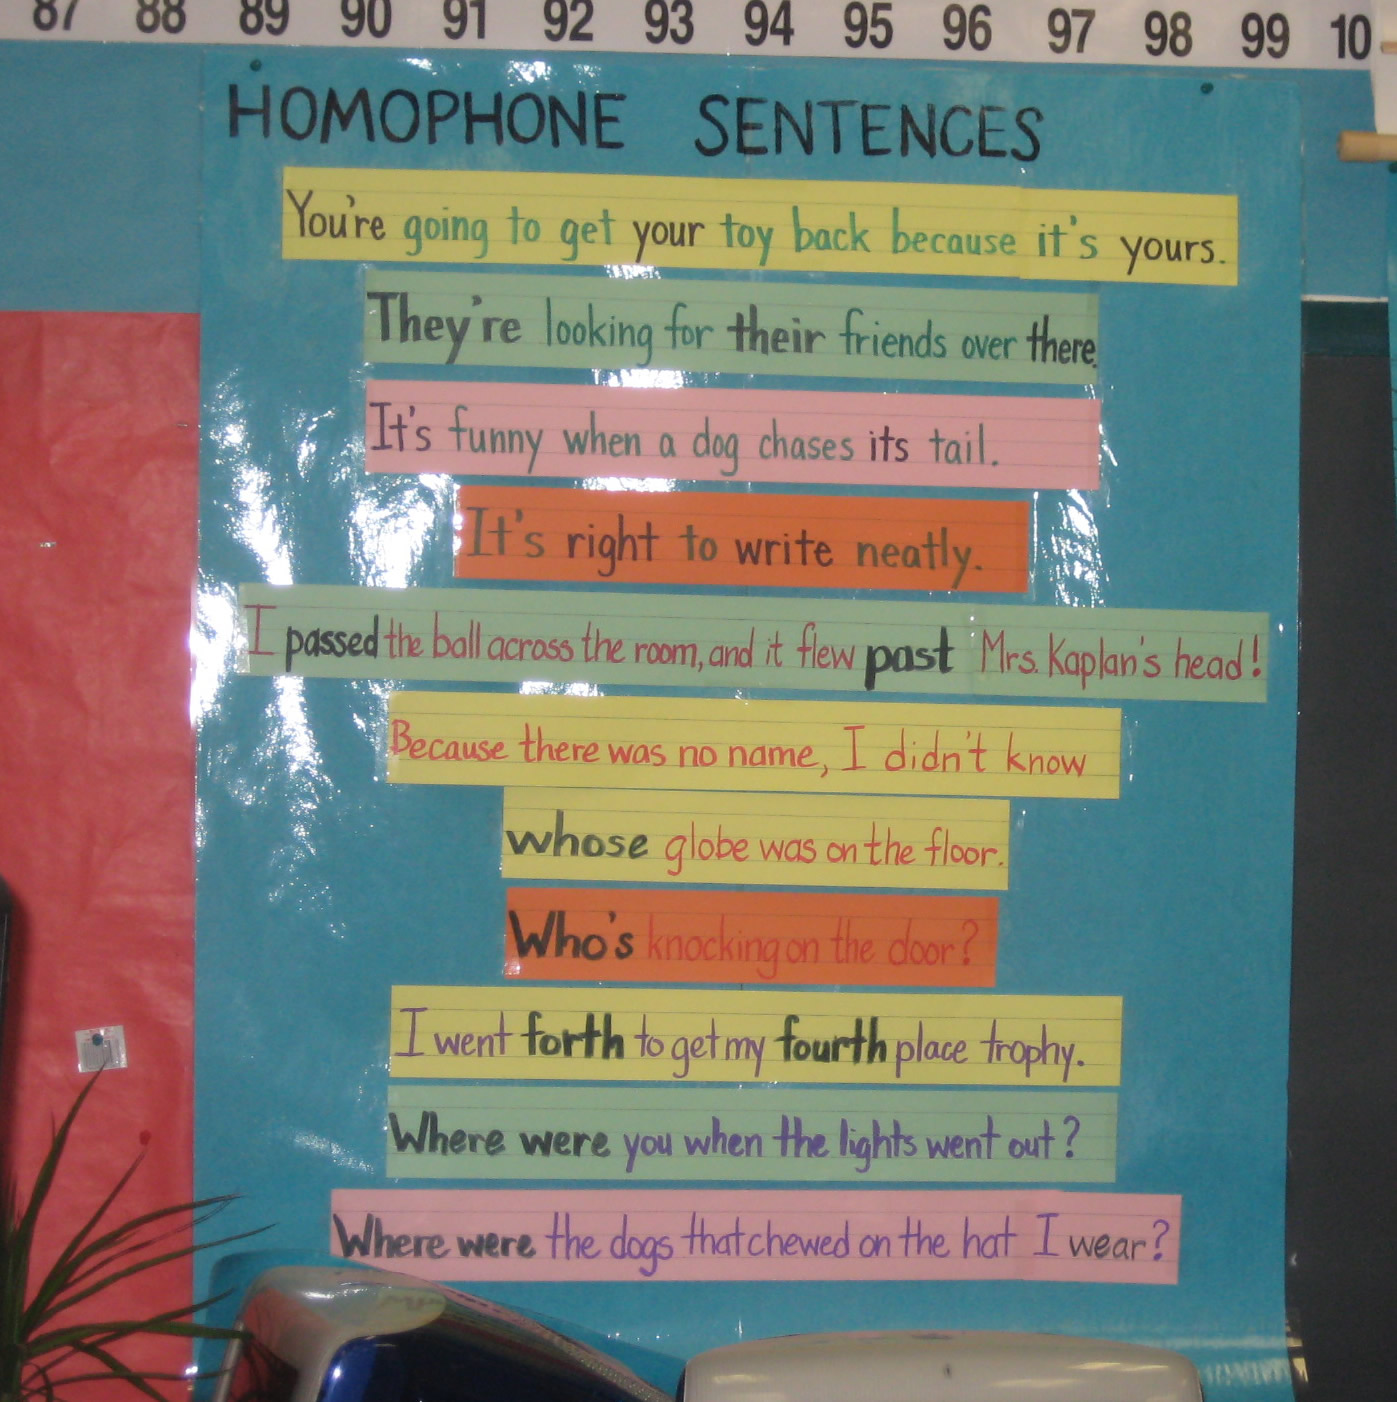 87 88 89 90 91 92 93 94 95 96 97 98 99 10
HOMOPHONE SENTENCES
You're going to get your toy back because it's yours.
They're looking for their friends over there.
It's funny when a dog chases its tail.
It's right to write neatly.
I passed the ball across the room, and it flew past Mrs. Kaplan's head!
Because there was no name, I didn't know
whose globe was on the floor.
Who's knocking on the door?
I went forth to get my fourth place trophy.
Where were you when the lights went out?
Where were the dogs that chewed on the hat I wear?